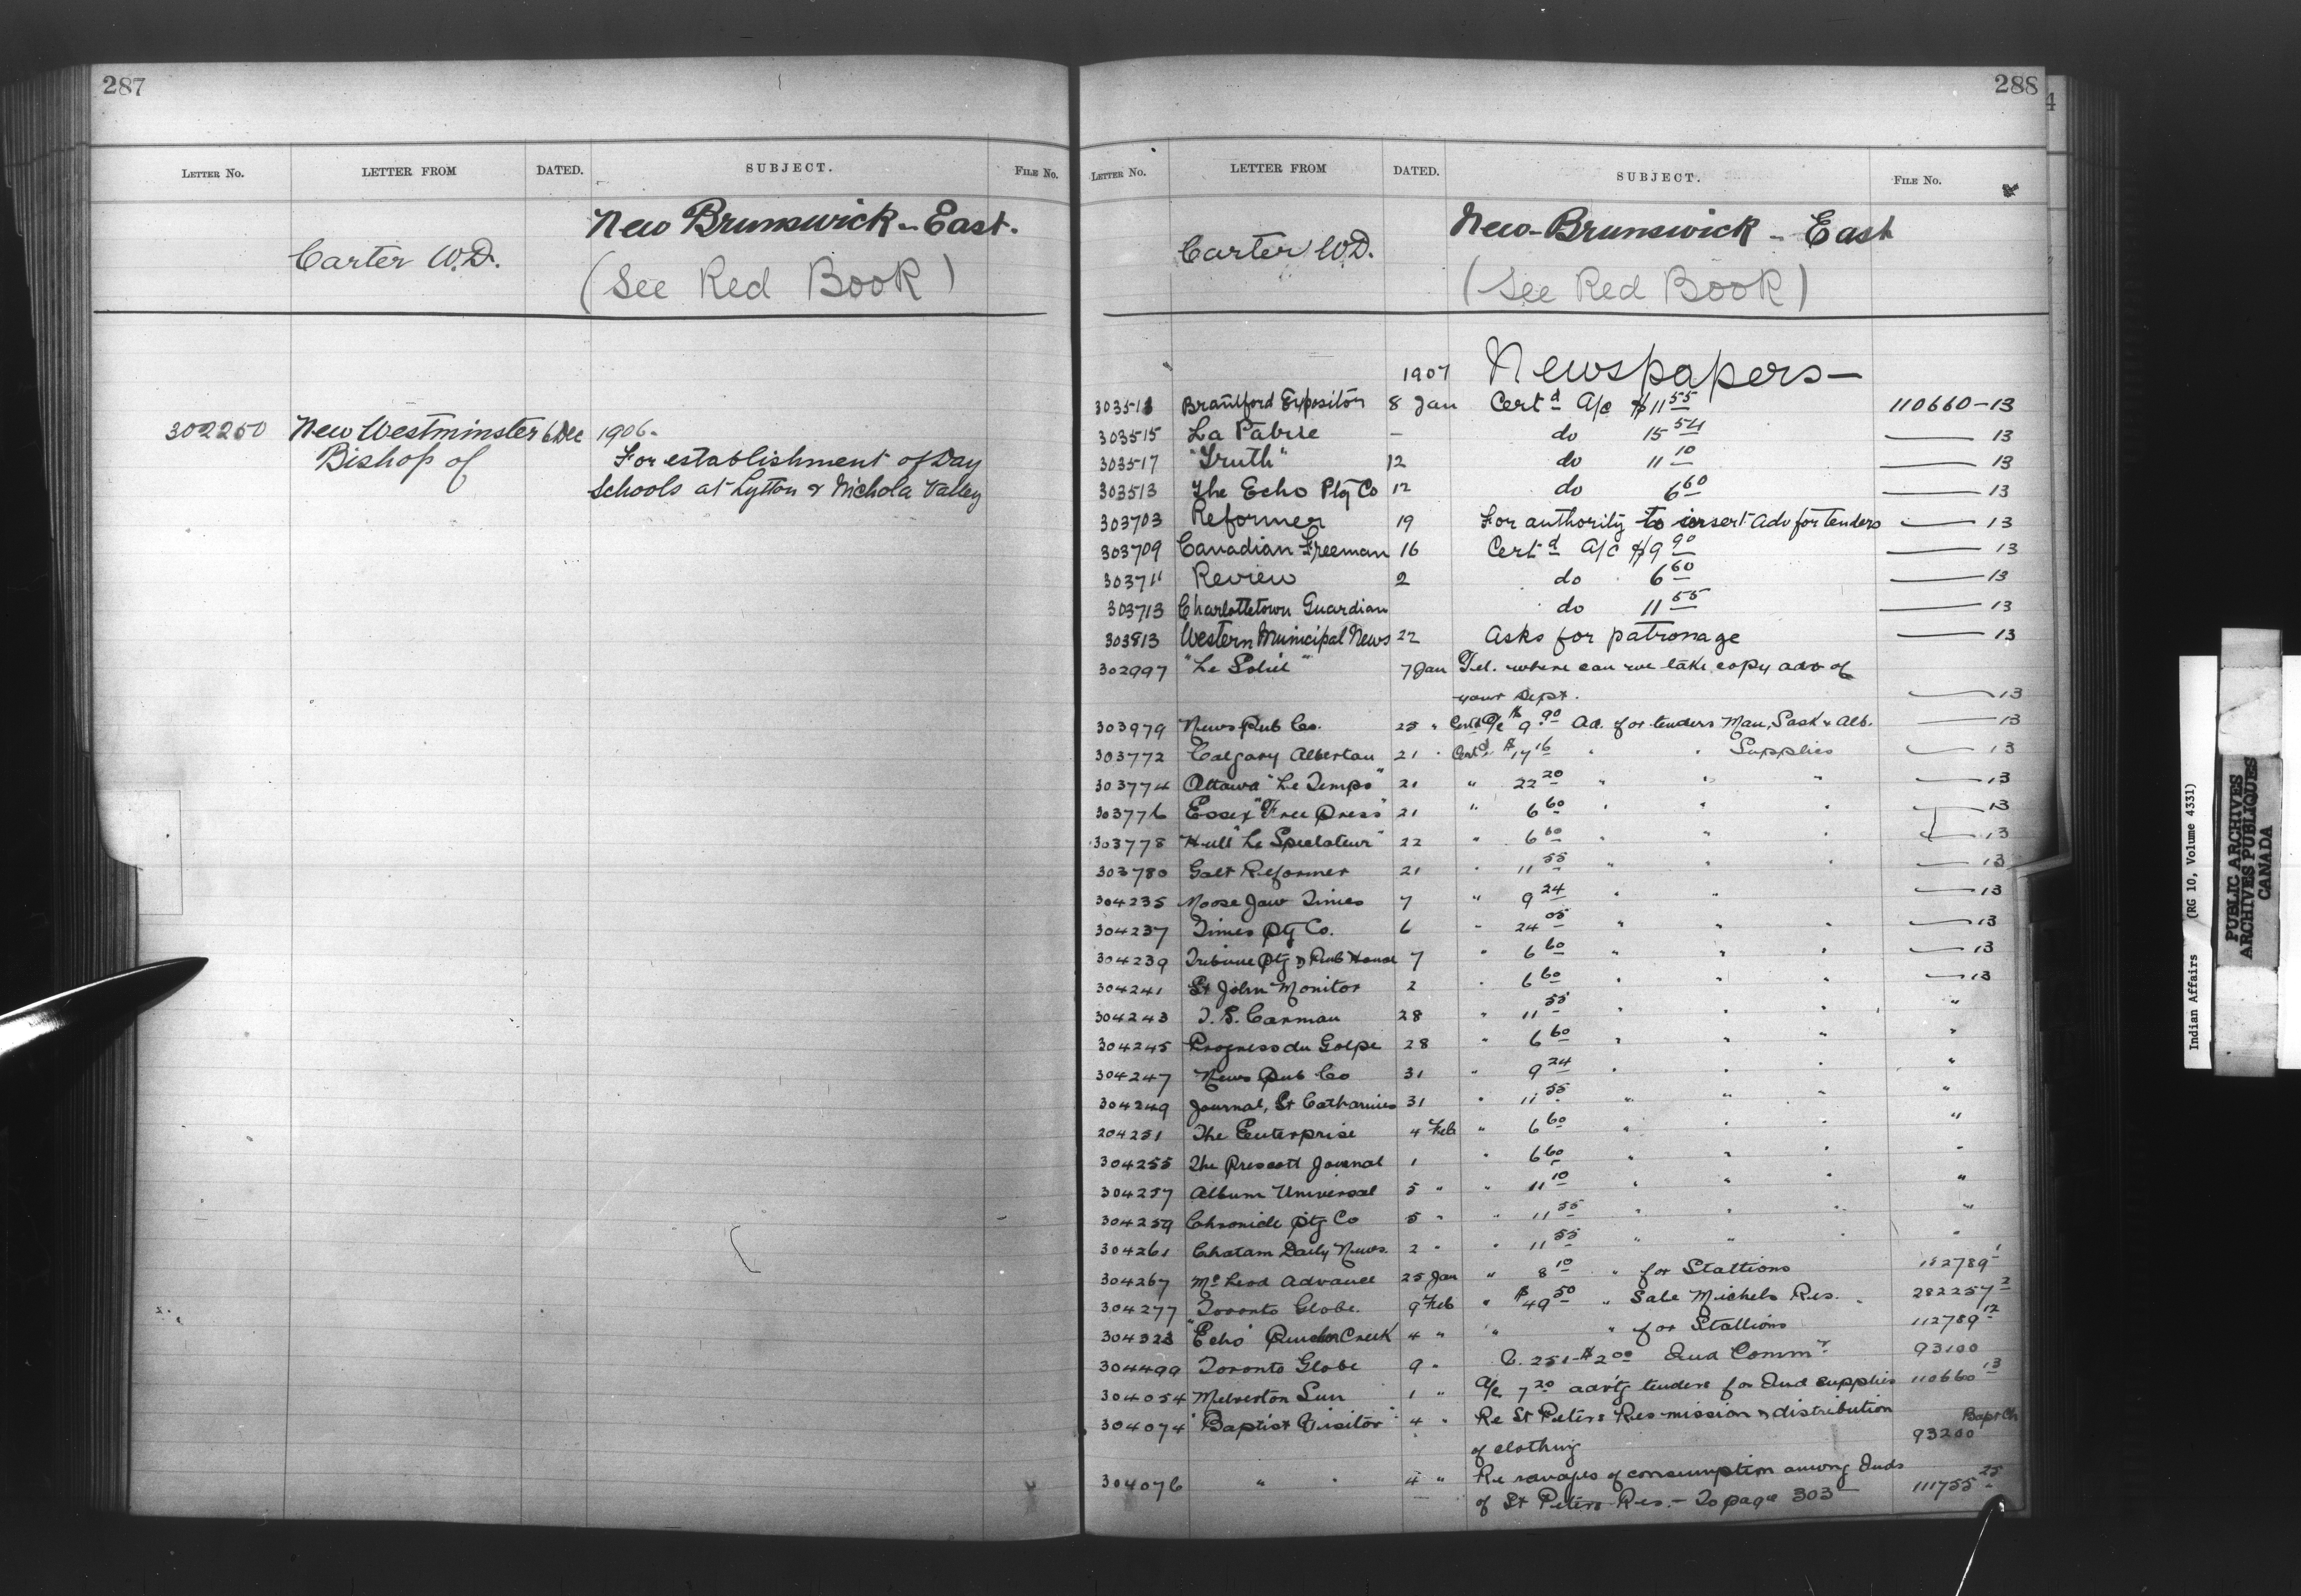 287
LETTER NO. LETTER FROM DATED. SUBJECT. FILE NO.
New Brunswick - East.
Carter W.D.
(See Red Book)
302250 New Westminster 6 Dec 1906.
Bishop of For establishment of Day
Schools at Lytton & Nichola Valley
288
LETTER NO. LETTER FROM DATED. SUBJECT. FILE NO.
New-Brunswick - East
Carter W.D.
(See Red Book)
1907 Newspapers—
303513 Brantford Expositor 8 Jan Certd A/c $11 55 110660-13
303515 La Patrie - do 15 54 — 13
303517 "Truth" 12 do 11 10 — 13
303513 The Echo Ptg Co 12 do 6 60 — 13
303703 Reformer 19 For authority to insert Adv for tenders — 13
303709 Canadian Freeman 16 Certd A/c $9 90 — 13
303711 Review 2 do 6 60 — 13
303713 Charlottetown Guardian do 11 55 — 13
303813 Western Municipal News 22 Asks for patronage — 13
302997 "Le Soliel" 7 Jan Tel. where can we take copy adv of
your Dept. — 13
303979 News Pub Co. 25 " Certd A/c $9.90 Ad. for tenders Man, Sask & Alb. — 13
303772 Calgary Albertan 21 " Certd. $17 16 " " Supplies — 13
303774 Ottawa "Le Temps" 21 " 22 20 " " " — 13
303776 Essex "Free Press" 21 " 6 60 " " " — 13
303778 Hull "Le Spectateur" 22 " 6 60 " " " — 13
303780 Galt Reformer 21 " 11 55 " " " — 13
304235 Moose Jaw Times 7 " 9 24 " " — 13
304237 Times Ptg Co. 6 " 24 05 " " " — 13
304239 Tribune Ptg & Pub House 7 " 6 60 " " " — 13
304241 St John Monitor 2 " 6 60 " " " — 13
304243 T. S. Carman 28 " 11 55 " " " "
304245 Progress du Golfe 28 " 6 60 " " " "
304247 News Pub Co 31 " 9 24 " " " "
304249 Journal, St Catharines 31 " 11 55 " " " "
204251 The Enterprise 4 Feb " 6 60 " " " "
304255 The Prescott Journal 1 " 6 60 " " " "
304257 Album Universal 5 " " 11 10 " " " "
304259 Chronicle Ptg Co 5 " " 11 55 " " " "
304261 Chatam Daily News. 2 " " 11 55 " " " "
304267 McLeod Advance 25 Jan " 8 10 " for Stallions 182789 1
304277 Toronto Globe. 9 Feb " $49 50 " Sale Michels Res. 282257 2
304323 "Echo" Pincher Creek 4 " " " for Stallions 112789 12
304499 Toronto Globe 9 " C. 251-$2 00 Ind Commr. 93100
304054 Milverton Sun 1 " A/c 7 20 advtg tenders for Ind supplies 110660 13
304074 "Baptist Visitor" 4 " Re St Peters Res mission & distribution Bapt Ch
of clothing 93200
304076 " " 4 " Re ravages of consumption among Inds
of St Peters Res. - To page 303 111755 25
Indian Affairs (RG 10, Volume 4331)
PUBLIC ARCHIVES
ARCHIVES PUBLIQUES
CANADA